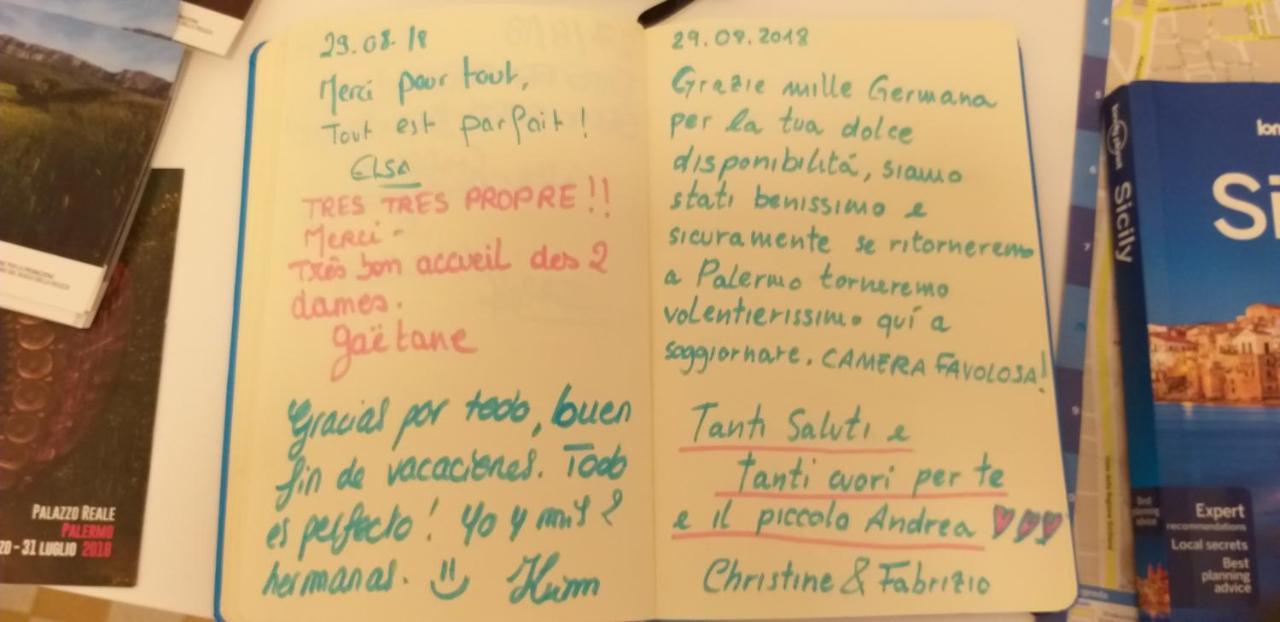 29.08.18
Merci pour tout,
Tout est parfait !
ELSA
TRES TRES PROPRE !!
Merci -
Très bon accueil des 2
dames.
Gaëtane
Gracias por todo, buen
fin de vacaciones. Todo
es perfecto ! Yo y mis 2
hermanas.
29.08.2018
Grazie mille Germana
per la tua dolce
disponibilitá, siamo
stati benissimo e
sicuramente se ritorneremo
a Palermo torneremo
volentierissimo quí a
soggiornare. CAMERA FAVOLOSA!
Tanti Saluti e
tanti cuori per te
e il piccolo Andrea
Christine & Fabrizio
PALAZZO REALE
PALERMO
31 LUGLIO 2018
lonely planet
Sicily
lon
Si
Expert
recommendations
Local secrets
Best
planning
advice